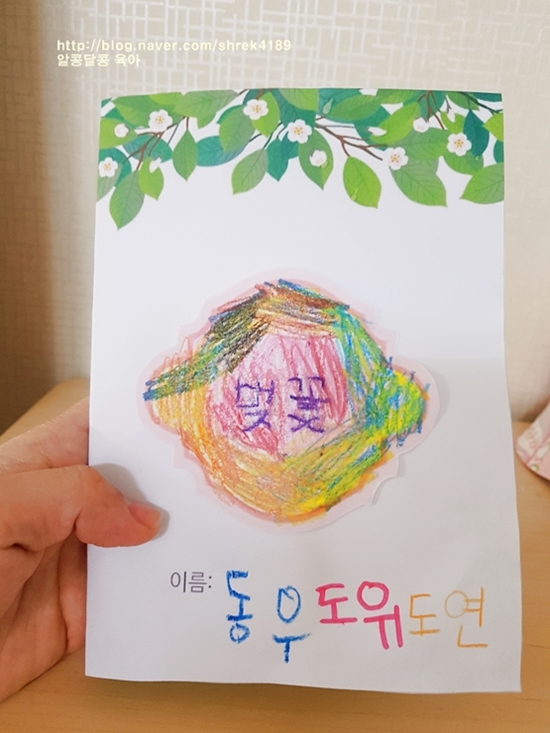 http://blog.naver.com/shrek4189
알콩달콩 육아
벚꽃
이름: 동우 도위 도연